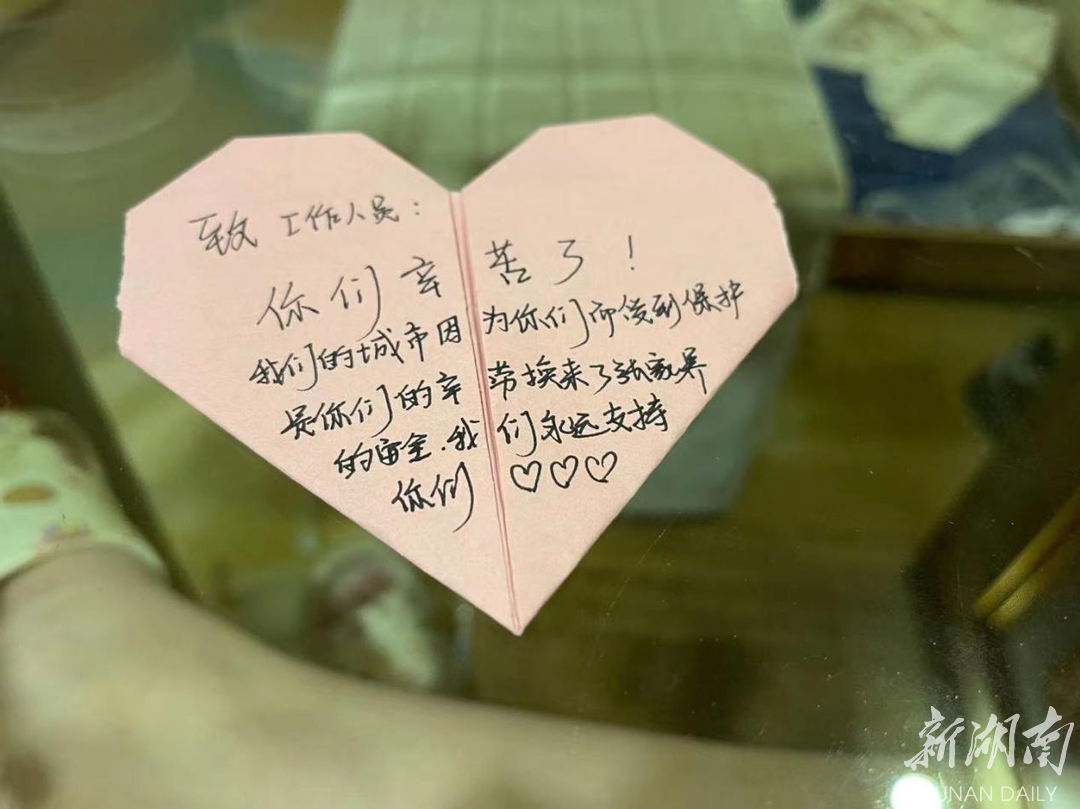 致 工作人员:
你们辛苦了!
我们的城市因为你们而受到保护
是你们的辛劳换来了张家界
的安全.我们永远支持
你们♡♡♡
新湖南
HUNAN DAILY